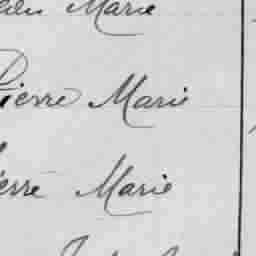 Marie
Pierre Marie
ierre Marie